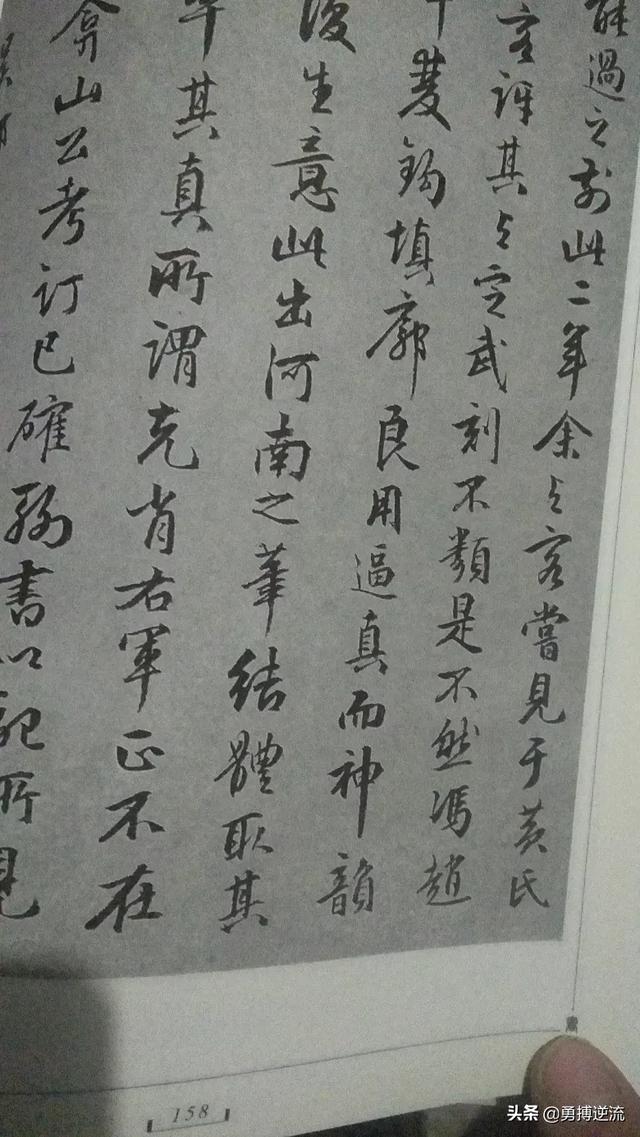 能過之前此二年余与客嘗見于黃氏
客訝其与定武刻不類是不然馮趙
雙鉤填廓良用逼真而神韻
復生意此出河南之筆結體取其
其真所謂克肖右軍正不在
弇山公考訂已確聊書以記所見
158
头条 @勇搏逆流